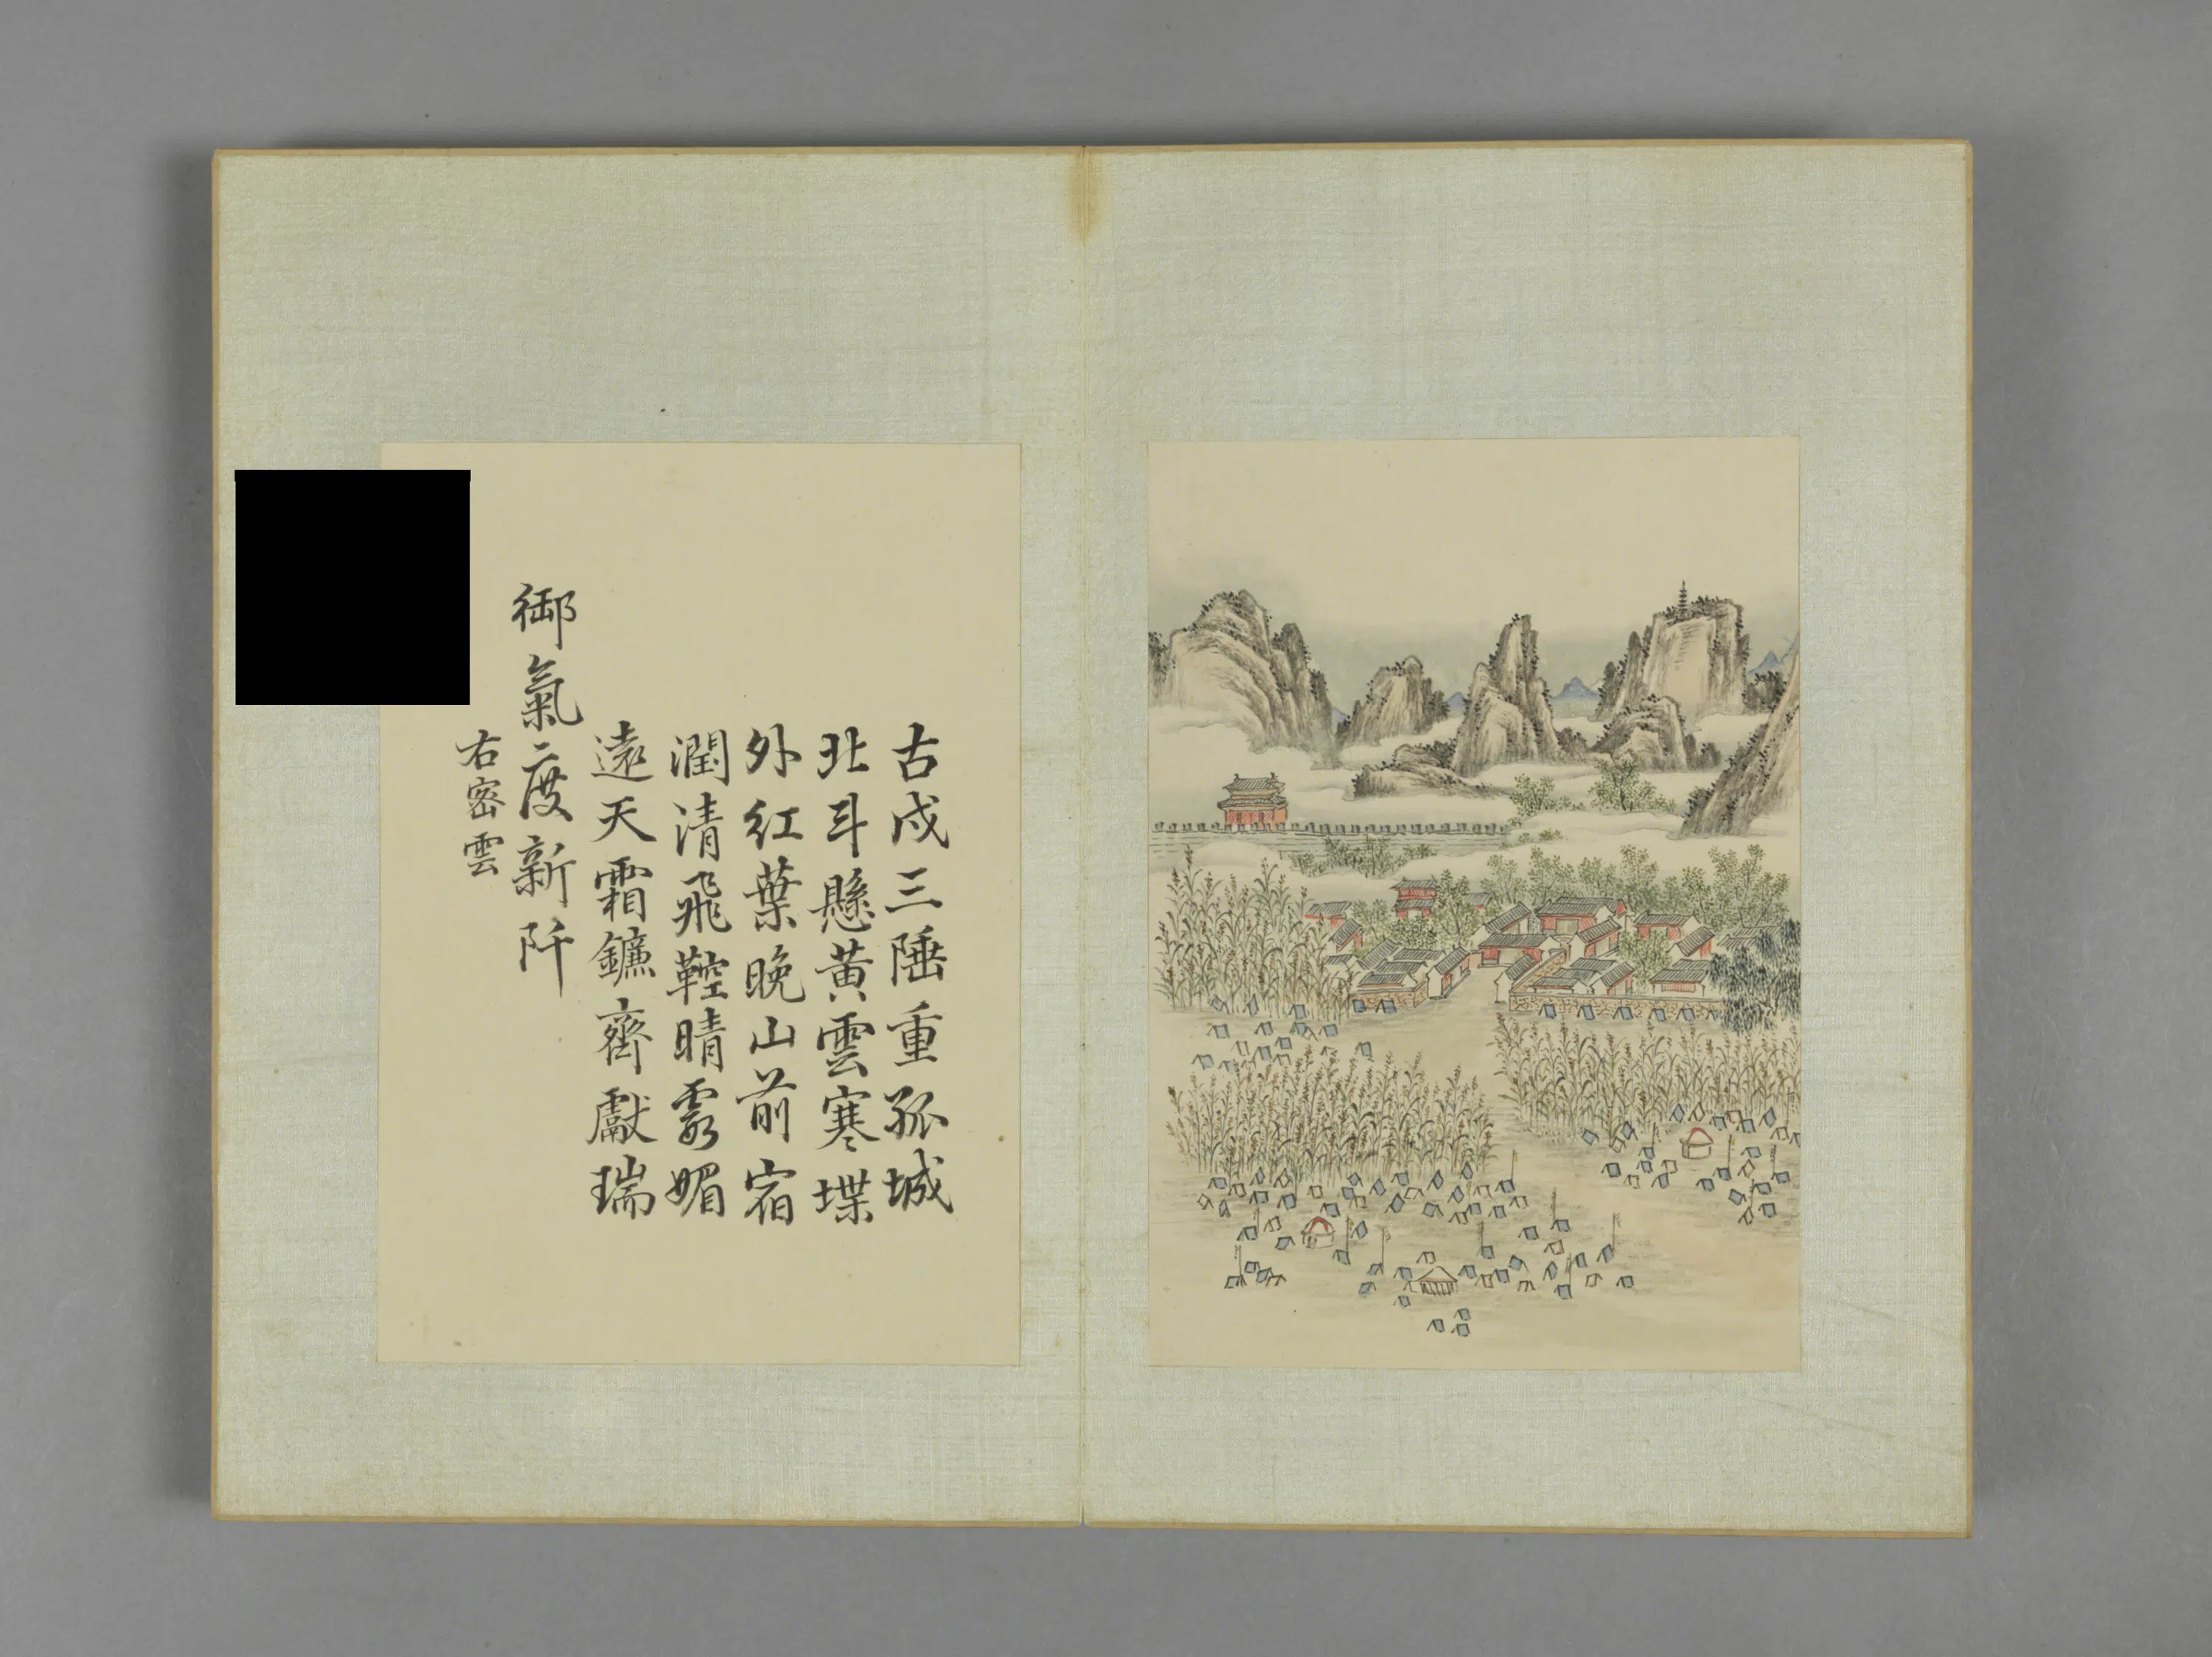 古戍三陲重孤城
北斗懸黄雲寒堞
外紅葉晚山前宿
潤清飛鞚晴雾媚
遠天霜鐮齊獻瑞
御氣度新阡
右密雲